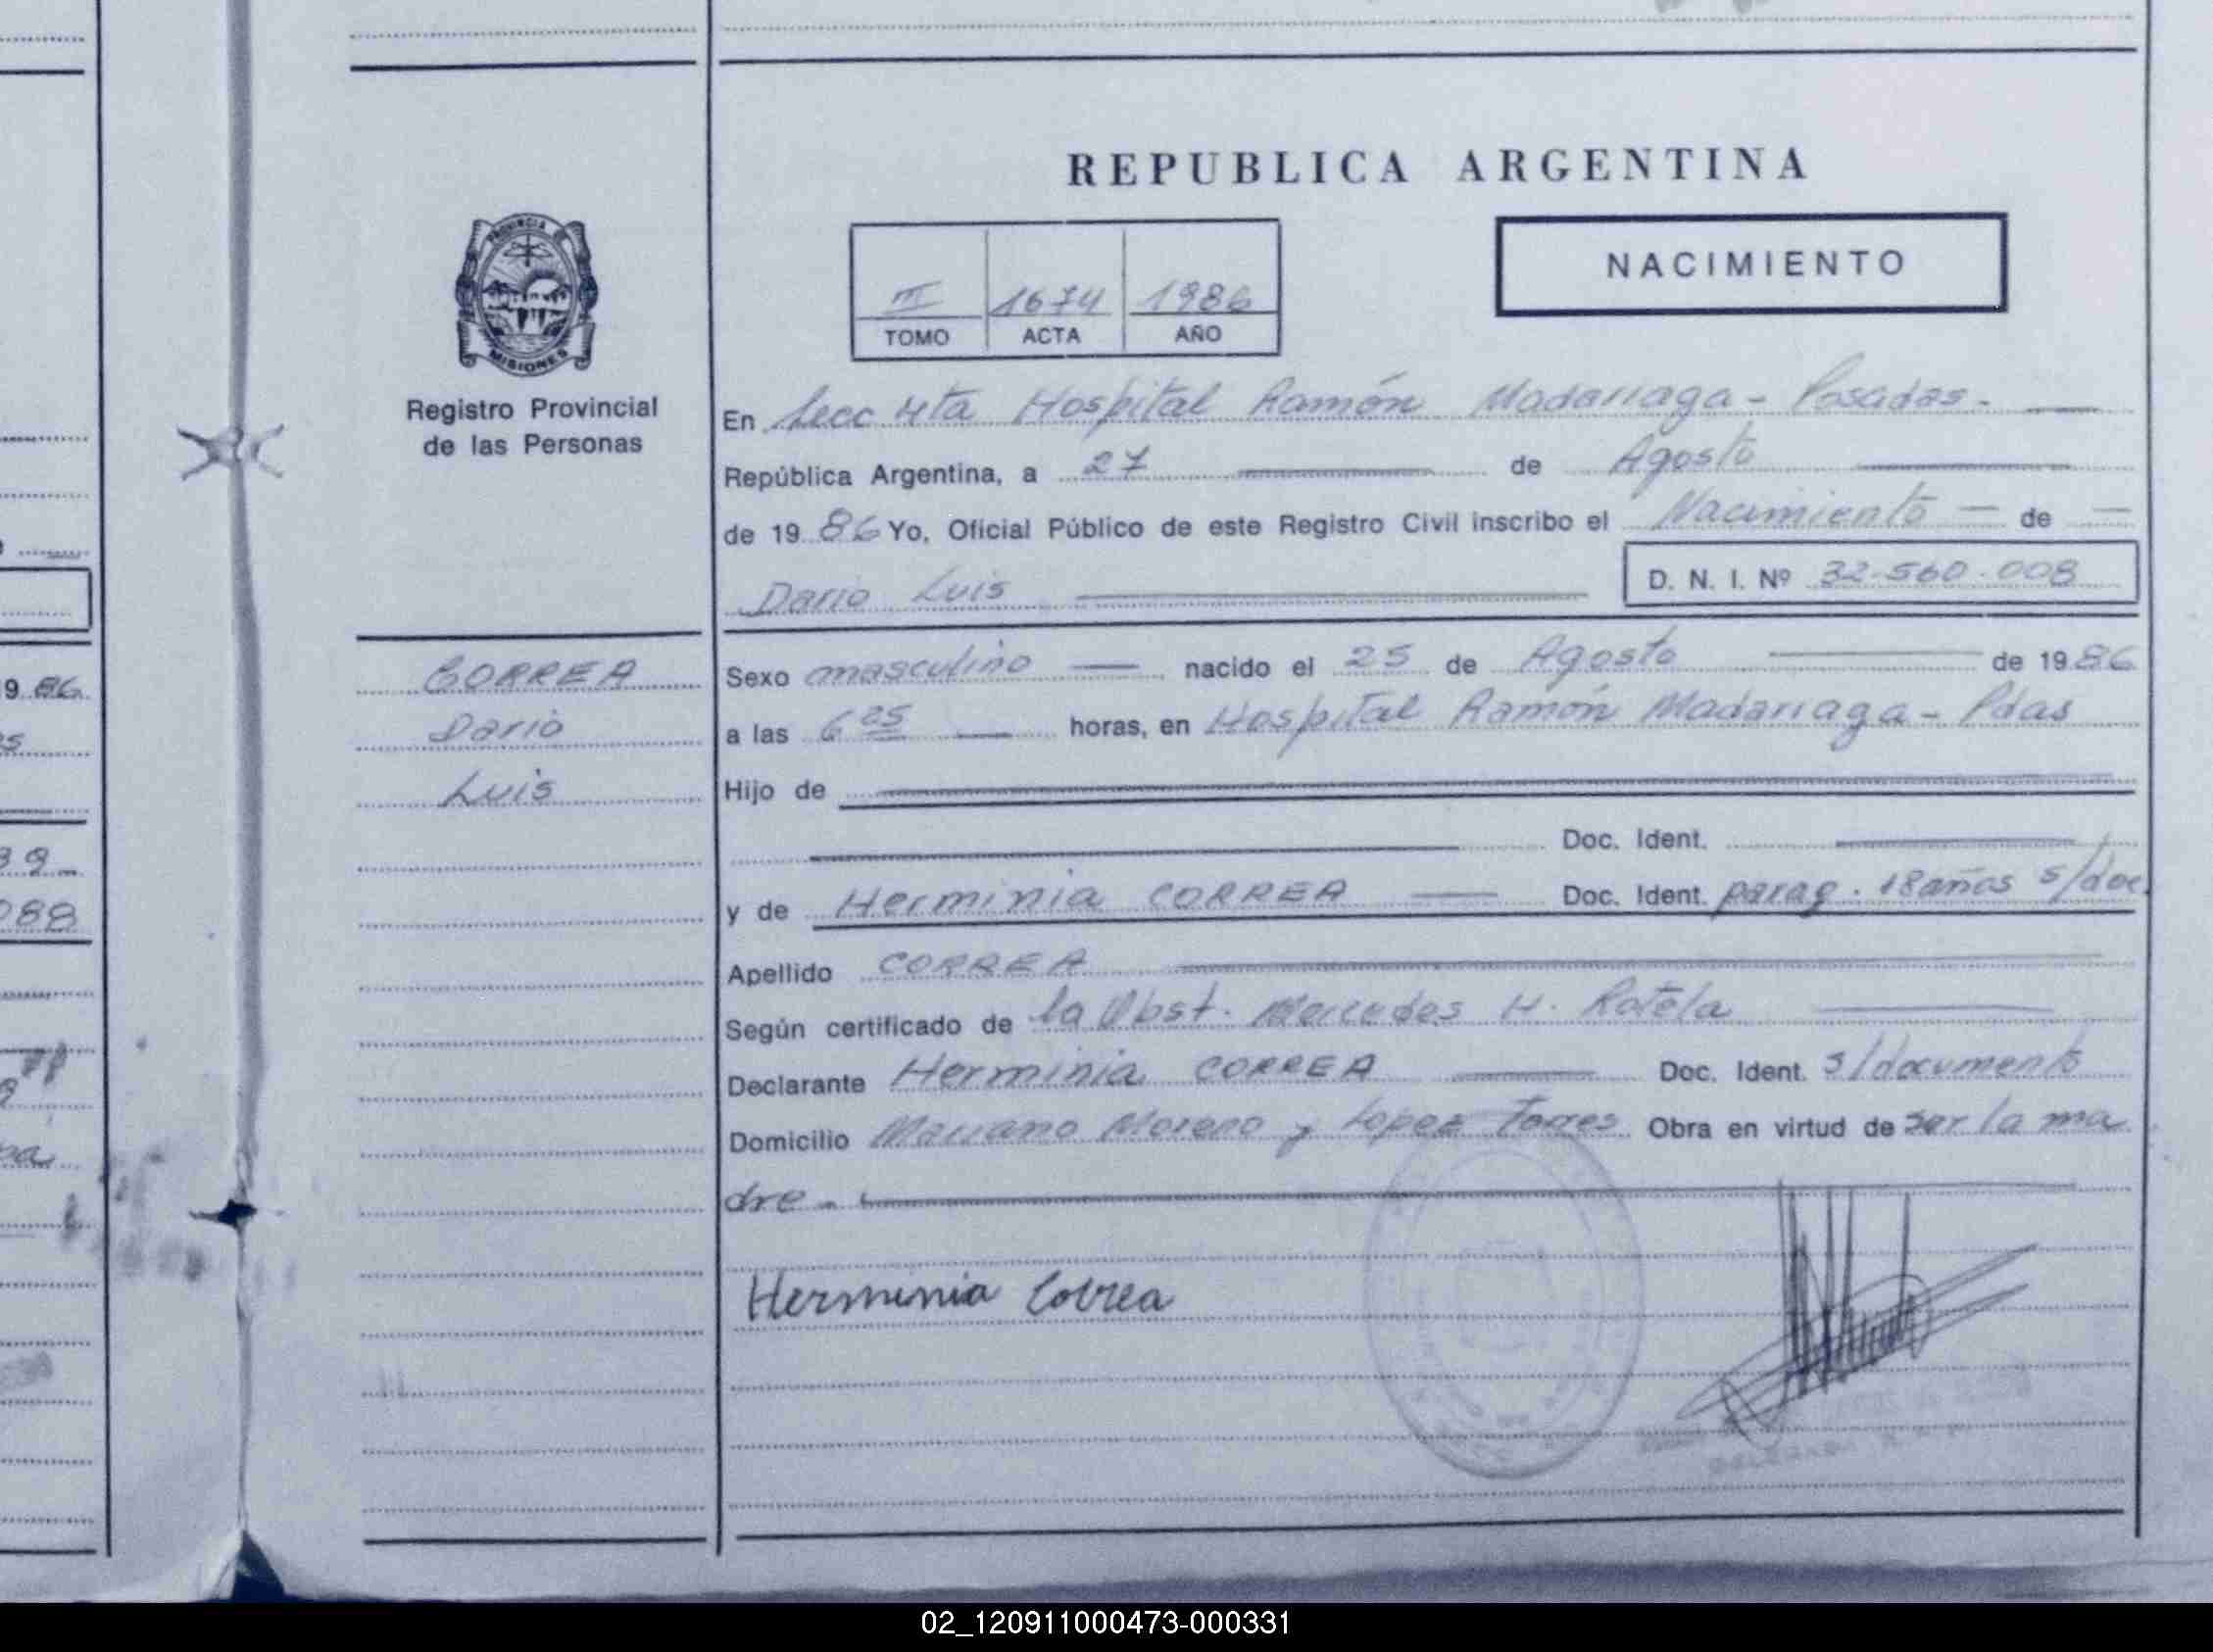 REPUBLICA ARGENTINA
PROVINCIA DE
MISIONES
Registro Provincial
de las Personas
III 1674 1986
TOMO ACTA AÑO
NACIMIENTO
En Secc 4ta Hospital Ramón Madariaga - Posadas. —
República Argentina, a 27 — de Agosto —
de 1986 Yo, Oficial Público de este Registro Civil inscribo el Nacimiento — de —
Dario Luis — D. N. I. Nº 32-560.008
CORREA
Dario
Luis
Sexo masculino — nacido el 25 de Agosto — de 1986
a las 6 25 — horas, en Hospital Ramón Madariaga - Pdas
Hijo de —
— Doc. Ident. —
y de Herminia CORREA — Doc. Ident. parag. 18 años s/doc.
Apellido CORREA —
Según certificado de la Obst. Mercedes H. Rotela —
Declarante Herminia CORREA — Doc. Ident. s/documento
Domicilio Mariano Moreno y Lopez Torres Obra en virtud de ser la ma
dre - —
Herminia Correa
986
088
02_120911000473-000331